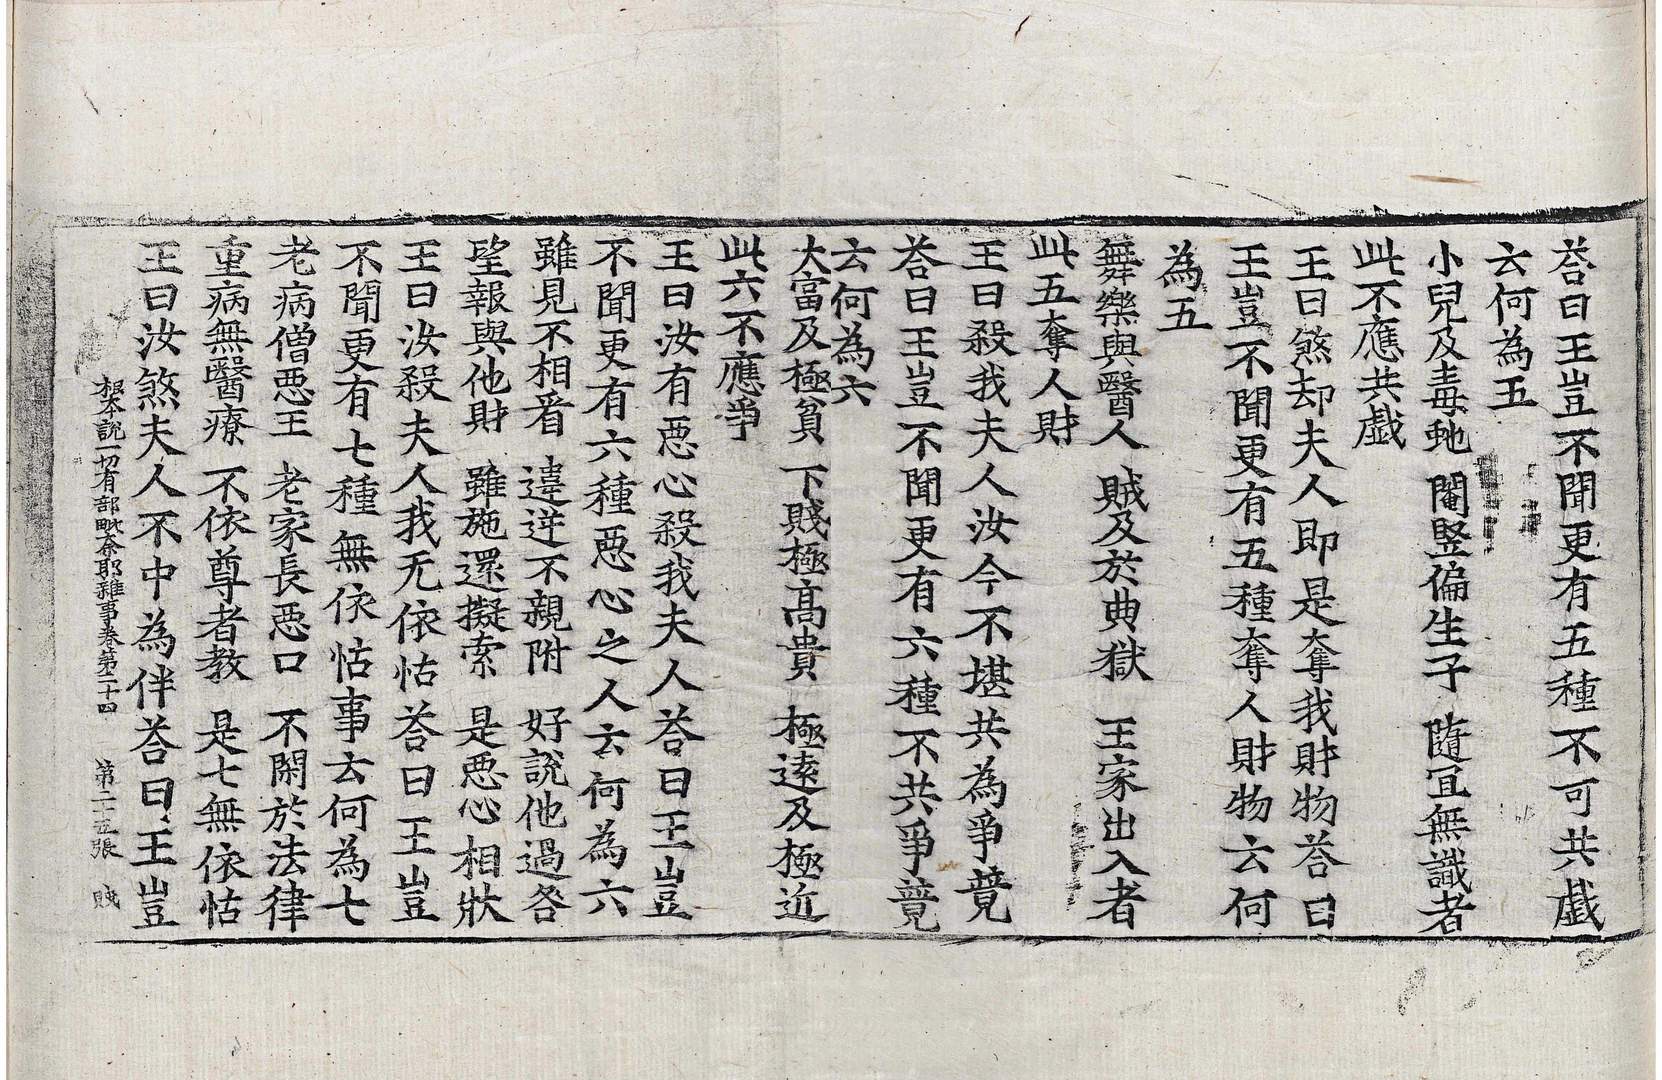 荅曰王豈不聞更有五種不可共戱
云何為五
小兒及毒虵　閹竪偏生子　隨冝無識者
此不應共戱
王曰煞却夫人即是奪我財物荅曰
王豈不聞更有五種奪人財物云何
為五
舞樂與醫人　賊及於典獄　王家出入者
此五奪人財
王曰殺我夫人汝今不堪共為爭竟
荅曰王豈不聞更有六種不共爭竟
云何為六
大富及極貧　下賤極高貴　極遠及極近
此六不應爭
王曰汝有惡心殺我夫人荅曰王豈
不聞更有六種惡心之人云何為六
雖見不相看　違逆不親附　好說他過咎
望報與他財　雖施還擬索　是惡心相狀
王曰汝殺夫人我无依怙荅曰王豈
不聞更有七種無依怙事云何為七
老病僧惡王　老家長惡口　不閑於法律
重病無醫療　不依尊者教　是七無依怙
王曰汝煞夫人不中為伴荅曰王豈
根本說一切有部毗奈耶雜事卷第二十四　第二十五張　賊